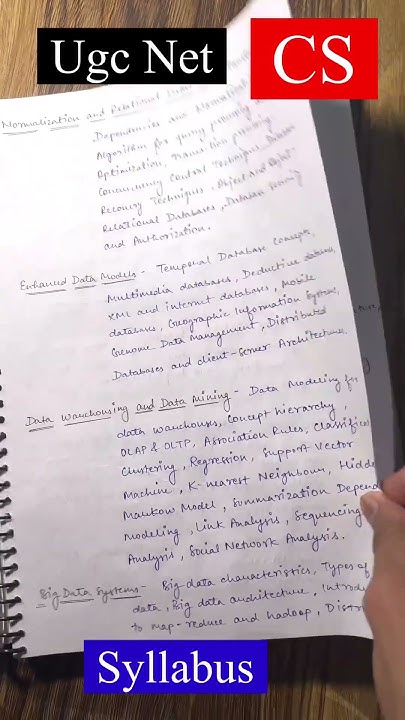 Ugc Net
CS
Normalization and Relational
Dependencies and Normalization
Algorithm for query processing
Optimization, Transaction processing
Concurrency Control Techniques, Database
Recovery Techniques, Object and Object
Relational Databases, Database Security
and Authorization.
Enhanced Data Models - Temporal Database Concepts,
Multimedia databases, Deductive databases,
XML and internet databases, Mobile
databases, Geographic Information Systems,
Genome Data Management, Distributed
Databases and client-Server Architecture,
Data Warehousing and Data Mining - Data Modeling for
data warehouses, Concept hierarchy,
OLAP & OLTP, Association Rules, Classific
Clustering, Regression, Support Vector
Machine, K-nearest Neighbour, Hidde
Markow Model, Summarization Depend
Modeling, Link Analysis, Sequencing
Analysis, Social Network Analysis.
Big Data Systems - Big data characteristics, Types of
data, Big data architecture, Introdu
to map-reduce and hadoop, Distri
Syllabus